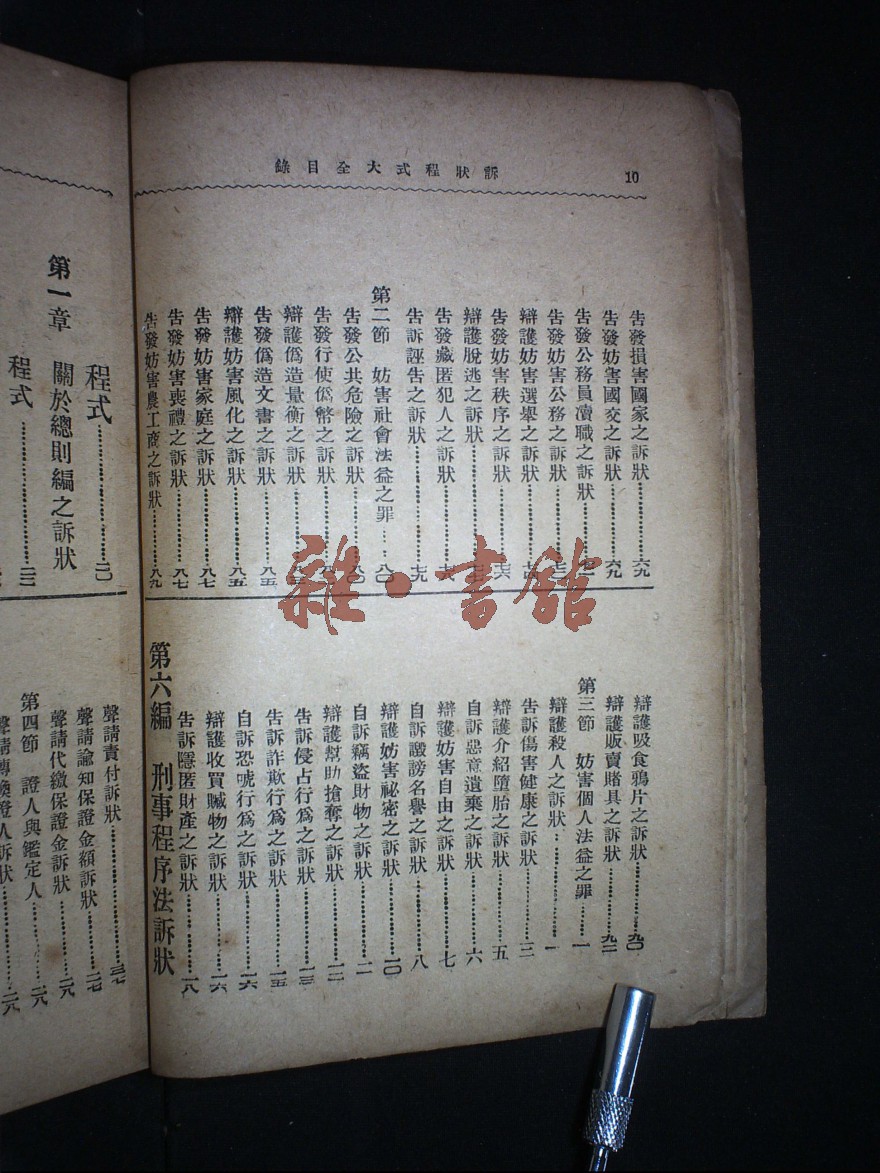 訴狀程式大全目錄
10
告發損害國家之訴狀…………六九
告發妨害國交之訴狀…………六九
告發公務員瀆職之訴狀…………
告發妨害公務之訴狀…………七三
辯護妨害選舉之訴狀…………七四
告發妨害秩序之訴狀…………七六
辯護脫逃之訴狀…………
告發藏匿犯人之訴狀…………七八
告訴誣告之訴狀…………七九
第二節 妨害社會法益之罪……八〇
告發公共危險之訴狀…………八〇
告發行使僞幣之訴狀…………
辯護僞造量衡之訴狀…………
告發僞造文書之訴狀…………八五
辯護妨害風化之訴狀…………八五
告發妨害家庭之訴狀…………八七
告發妨害喪禮之訴狀…………八七
告發妨害農工商之訴狀…………八九
辯護吸食鴉片之訴狀…………九〇
辯護販賣賭具之訴狀…………
第三節 妨害個人法益之罪……一
辯護殺人之訴狀…………一
告訴傷害健康之訴狀…………三
辯護介紹墮胎之訴狀…………五
自訴惡意遺棄之訴狀…………六
辯護妨害自由之訴狀…………七
自訴譭謗名譽之訴狀…………八
辯護妨害祕密之訴狀…………一〇
自訴竊盜財物之訴狀…………
辯護幫助搶奪之訴狀…………
告訴侵占行爲之訴狀…………一三
告訴詐欺行爲之訴狀…………一五
自訴恐嚇行爲之訴狀…………一六
辯護收買贓物之訴狀…………一六
告訴隱匿財產之訴狀…………一八
第六編 刑事程序法訴狀
程式…………二〇
第一章 關於總則編之訴狀
程式…………
聲請責付訴狀…………
聲請諭知保證金額訴狀…………二七
聲請代繳保證金訴狀…………二八
第四節 證人與鑑定人…………二八
聲請傳喚證人訴狀…………二八
雜·書館